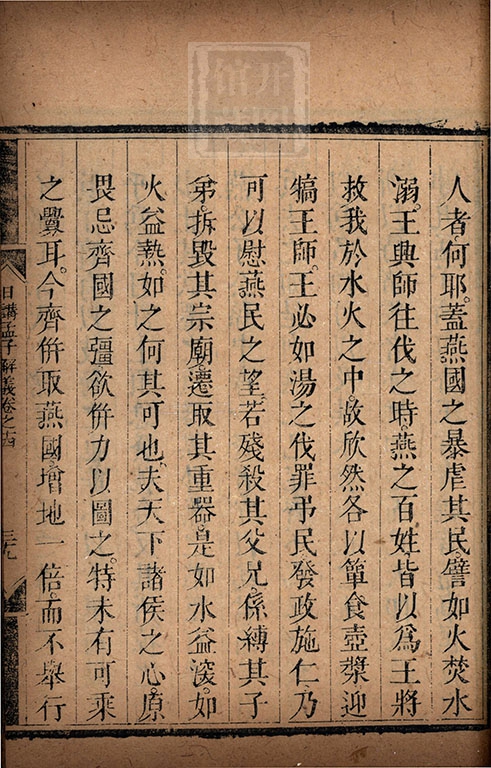 人者。何耶。蓋燕國之暴虐其民。譬如火焚水
溺。王興師往伐之時。燕之百姓皆以為王將
救我於水火之中。故欣然各以簞食壺漿迎
犒王師。王必如湯之伐罪弔民發政施仁乃
可以慰燕民之望。若殘殺其父兄。係縛其子
弟。拆毀其宗廟。遷取其重器。是如水益深。如
火益熱。如之何其可也。夫天下諸侯之心。原
畏忌齊國之彊。欲併力以圖之。特未有可乘
之釁耳。今齊併取燕國增地一倍。而不舉行
日講孟子解義卷之十四
三九